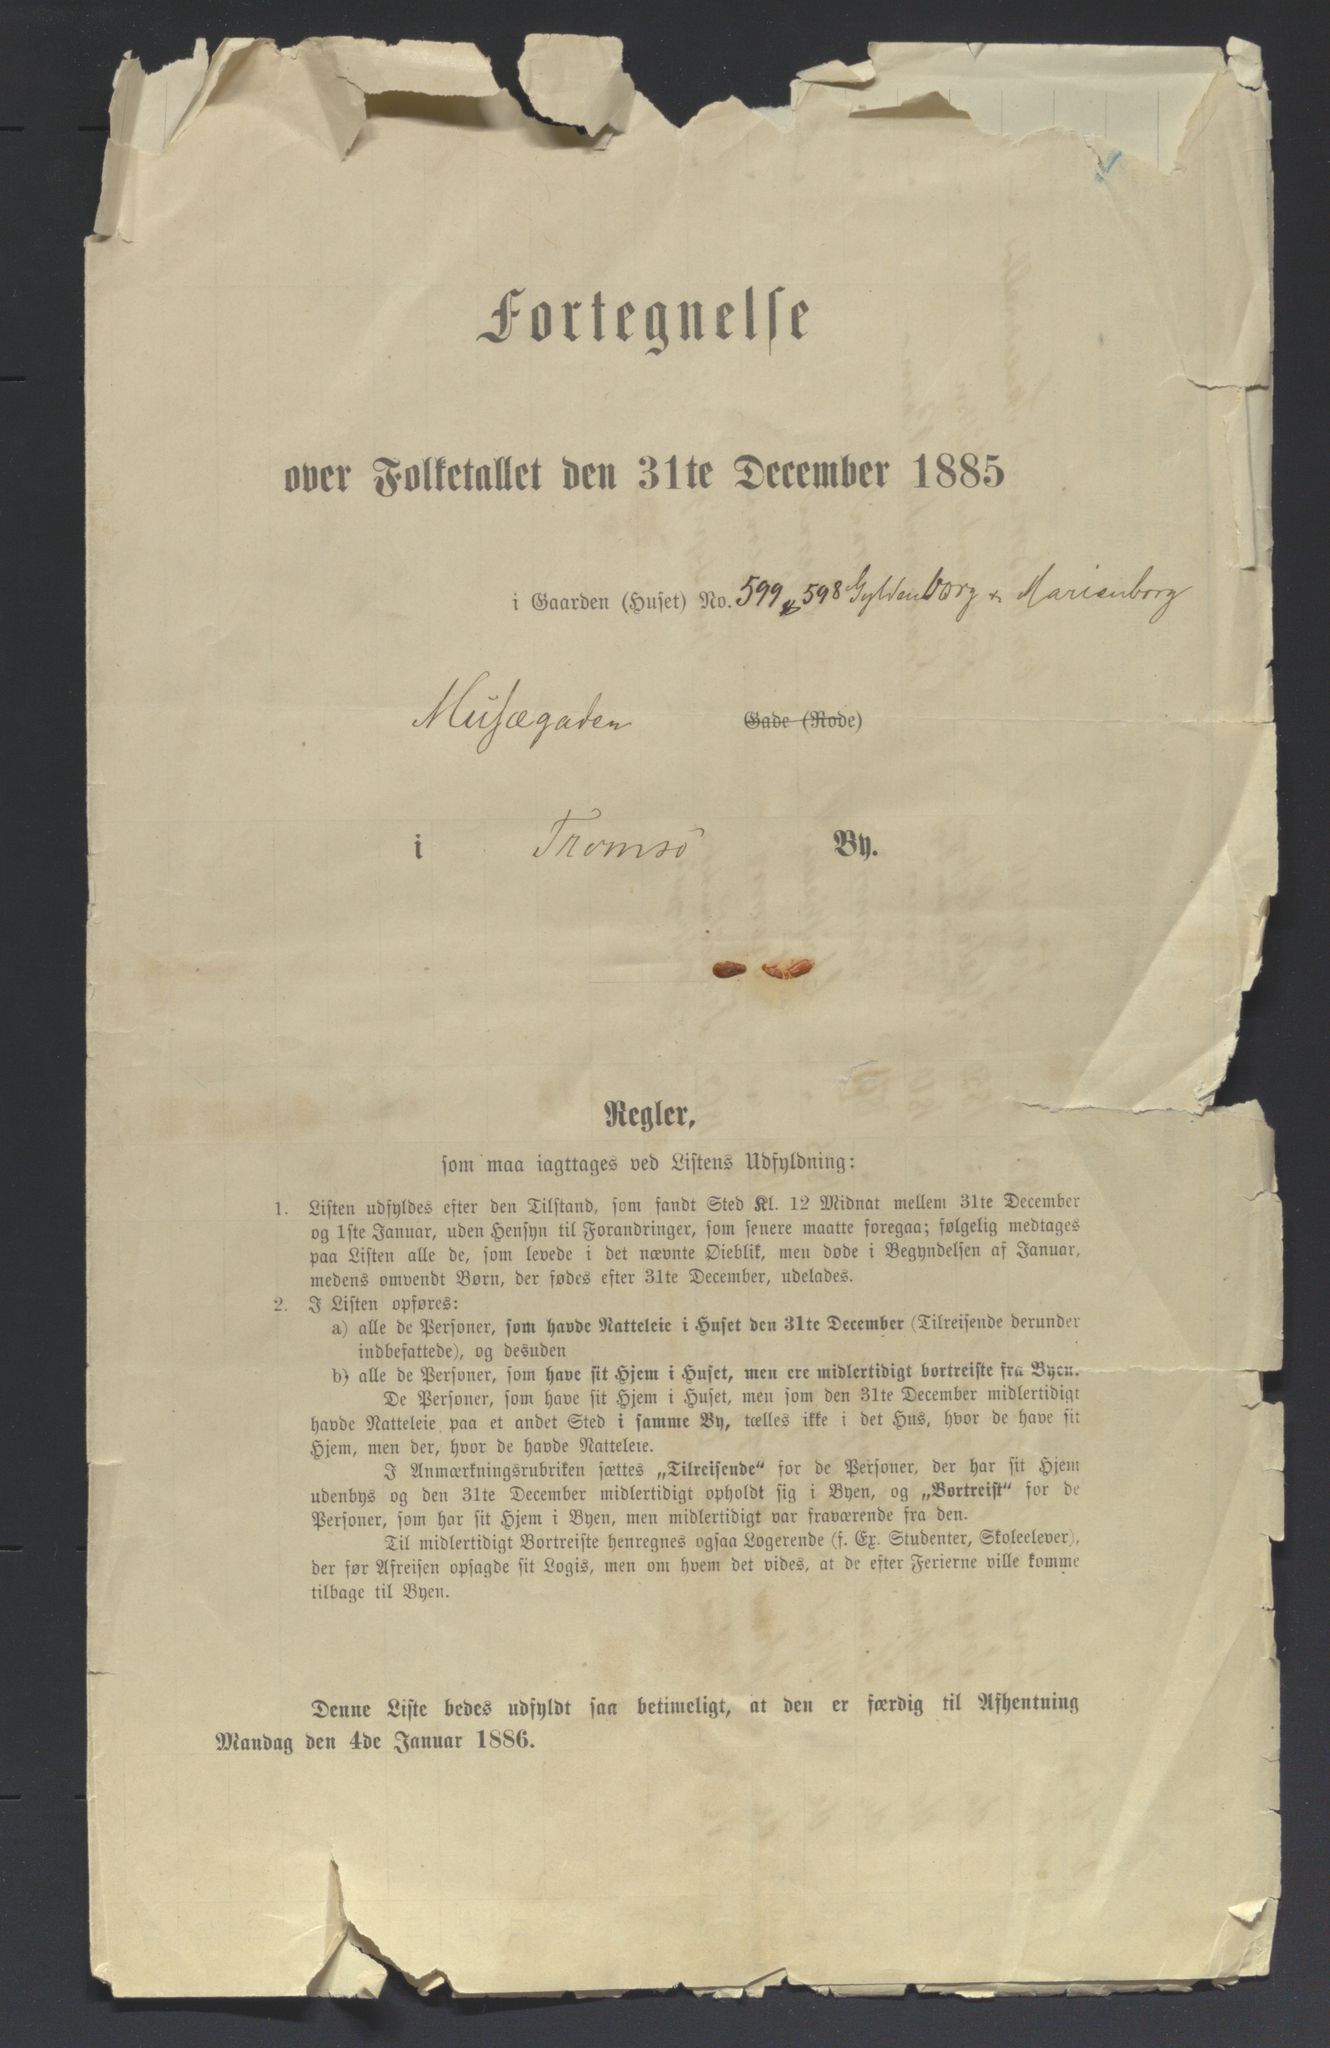 Fortegnelse
over Folketallet den 31te December 1885
i Gaarden (Huset) No. 599 & 598 Gyldenborg & Marienborg
Musægaden Gade (Rode)
i Tromsö By.
Regler,
som maa iagttages ved Listens Udfyldning:
1. Listen udfyldes efter den Tilstand, som fandt Sted Kl. 12 Midnat mellem 31te December
og 1ste Januar, uden Hensyn til Forandringer, som senere maatte foregaa; følgelig medtages
paa Listen alle de, som levede i det nævnte Øieblik, men døde i Begyndelsen af Januar,
medens omvendt Børn, der fødes efter 31te December, udelades.
2. I Listen opføres:
a) alle de Personer, som havde Natteleie i Huset den 31te December (Tilreisende derunder
indbefattede), og desuden
b) alle de Personer, som have sit Hjem i Huset, men ere midlertidigt bortreiste fra Byen.
De Personer, som have sit Hjem i Huset, men som den 31te December midlertidigt
havde Natteleie paa et andet Sted i samme By, tælles ikke i det Hus, hvor de have sit
Hjem, men der, hvor de havde Natteleie.
I Anmærkningsrubriken sættes „Tilreisende“ for de Personer, der har sit Hjem
udenbys og den 31te December midlertidigt opholdt sig i Byen, og „Bortreist“ for de
Personer, som har sit Hjem i Byen, men midlertidigt var fraværende fra den.
Til midlertidigt Bortreiste henregnes ogsaa Logerende (f. Ex. Studenter, Skoleelever),
der før Afreisen opsagde sit Logis, men om hvem det vides, at de efter Ferierne ville komme
tilbage til Byen.
Denne Liste bedes udfyldt saa betimeligt, at den er færdig til Afhentning
Mandag den 4de Januar 1886.